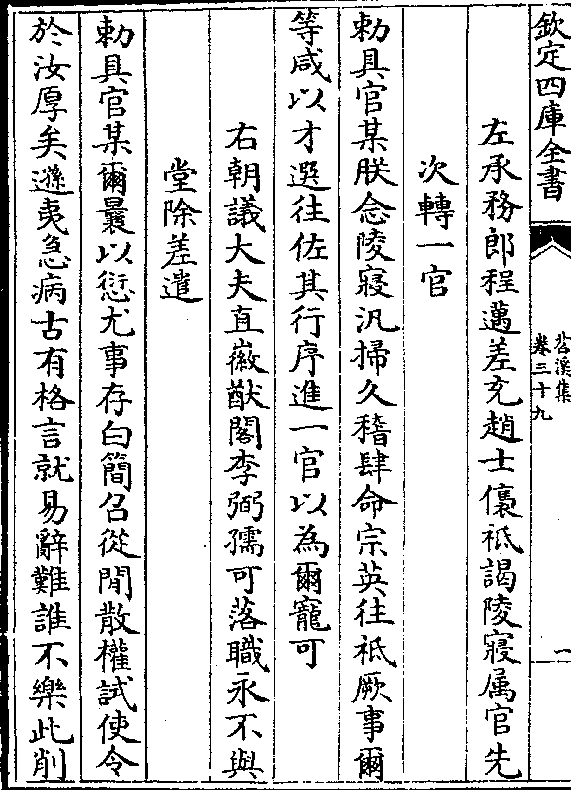 欽定四庫全書
苕溪集
卷三十九
一
左承務郎程邁差充趙士㒟祗謁陵寢属官先
次轉一官
勅具官某朕念陵寢汎掃久稽肆命宗英往祗厥事爾
等咸以才選往佐其行序進一官以為爾寵可
右朝議大夫直徽猷閣李弼孺可落職永不與
堂除差遣
勅具官某爾曩以愆尤事存白簡召從閒散權試使令
於汝厚矣遜夷急病古有格言就易辭難誰不樂此削